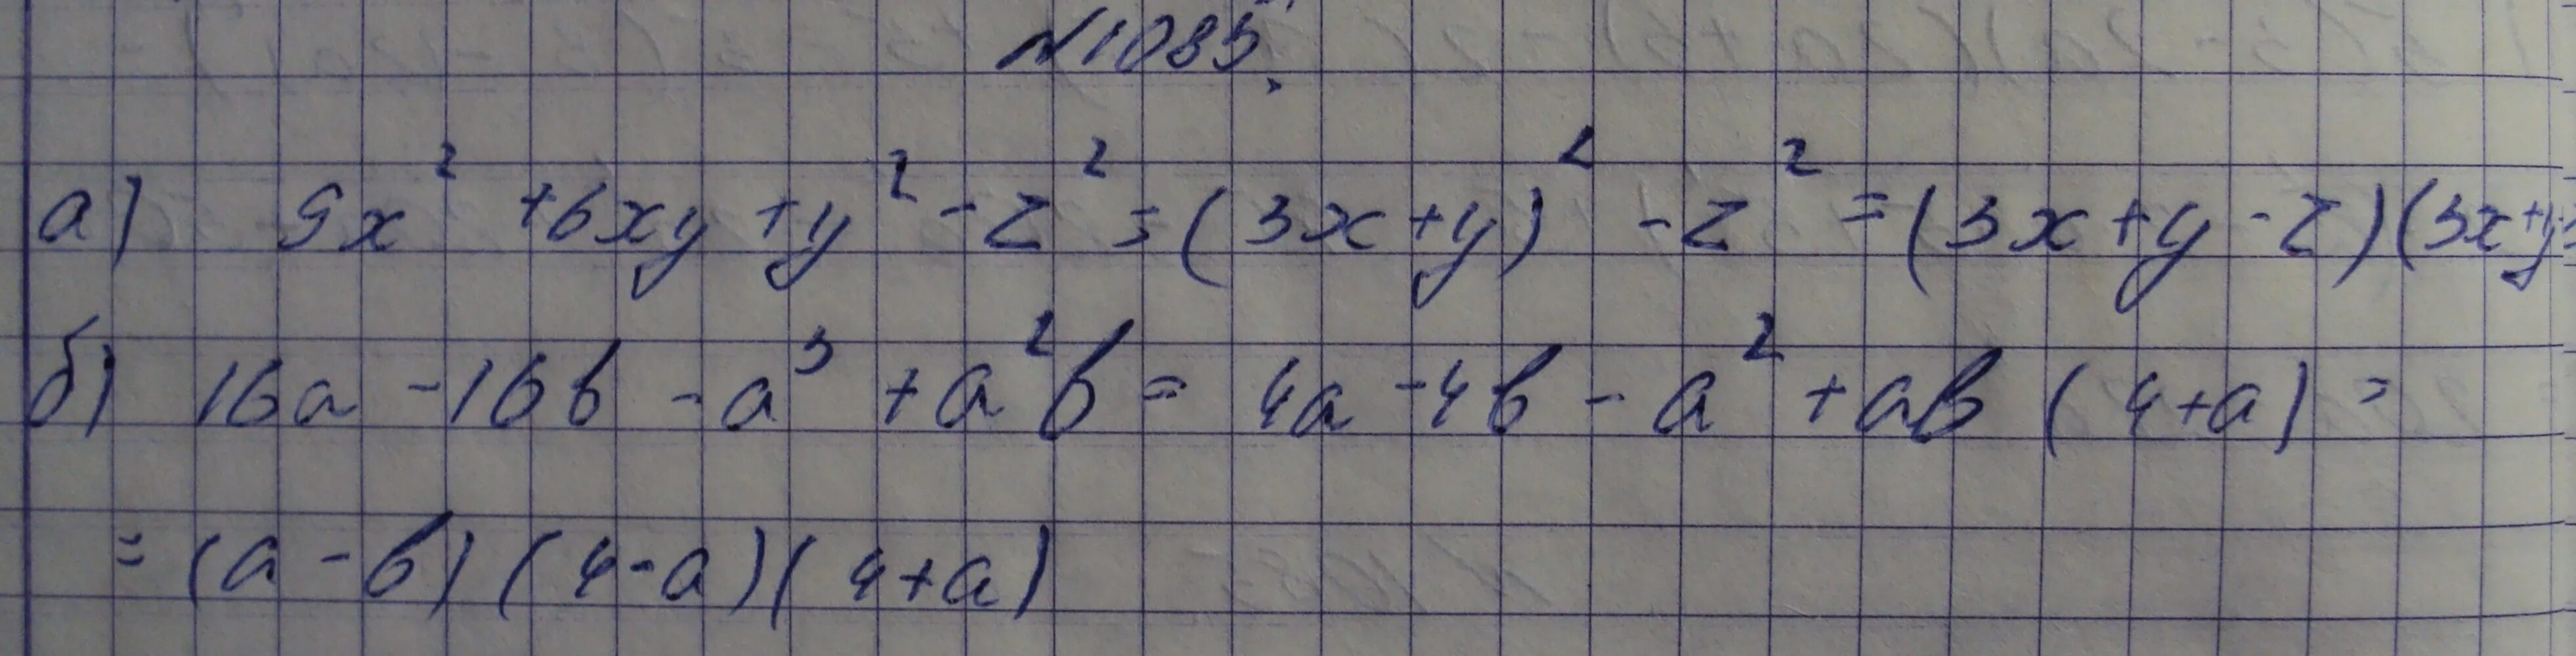 №1085.
а) 9x² + 6xy + y² - z² = (3x + y)² - z² = (3x + y - z)(3x + y
б) 16a - 16b - a³ + a²b = 4a - 4b - a² + ab (4 + a) =
= (a - b) (4 - a) (4 + a)